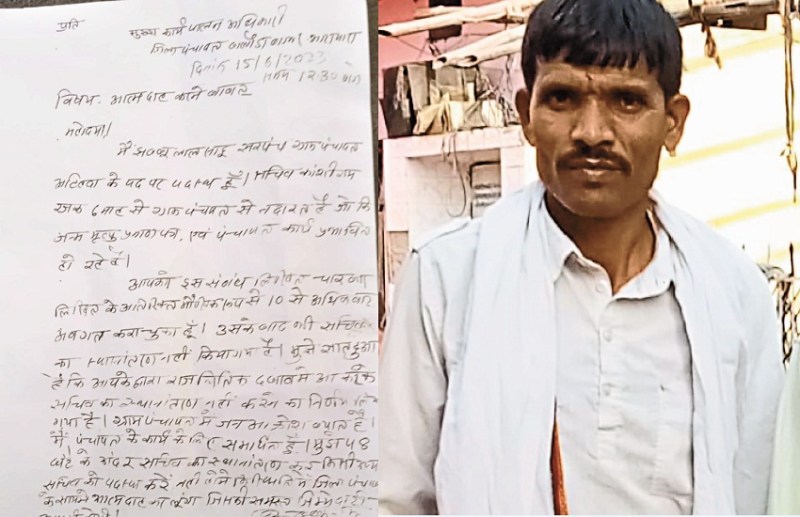 प्रति
मुख्य कार्यपालन अधिकारी
जिला पंचायत
दिनांक 15/6/2023
12:30 बजे
विषय- आत्मदाह करने बावत
महोदय।
मैं लाल साहू सरपंच ग्राम पंचायत
के पद पर पदस्थ हूँ। सचिव काशीराम
रजक माह से ग्राम पंचायत से नदारत है जो कि
जन्म मृत्यु प्रमाण पत्र, एवं पंचायत कार्य प्रभावित
हो रहे हैं।
आपको इस संबंध लिखित चार बार
लिखित के अतिरिक्त मौखिक रूप से 10 से अधिक बार
अवगत करा चुका हूँ। उसके बाद भी सचिव
का स्थानांतरण नहीं किया गया है। मुझे ज्ञात हुआ
है कि आपके द्वारा राजनितिक दबाव में आ करके
सचिव का स्थानांतरण नहीं करने का निर्णय लिया
गया है। ग्राम पंचायत में जन आक्रोश व्याप्त है।
मैं, पंचायत के कार्य के लिए समर्पित हूँ।
घंटे के अंदर सचिव का स्थानांतरण कर किसी अन्य
सचिव को पदस्थ करें नहीं तो जिला पंचायत
के सामने आत्मदाह कर लूंगा जिसकी समस्त जिम्मेदारी